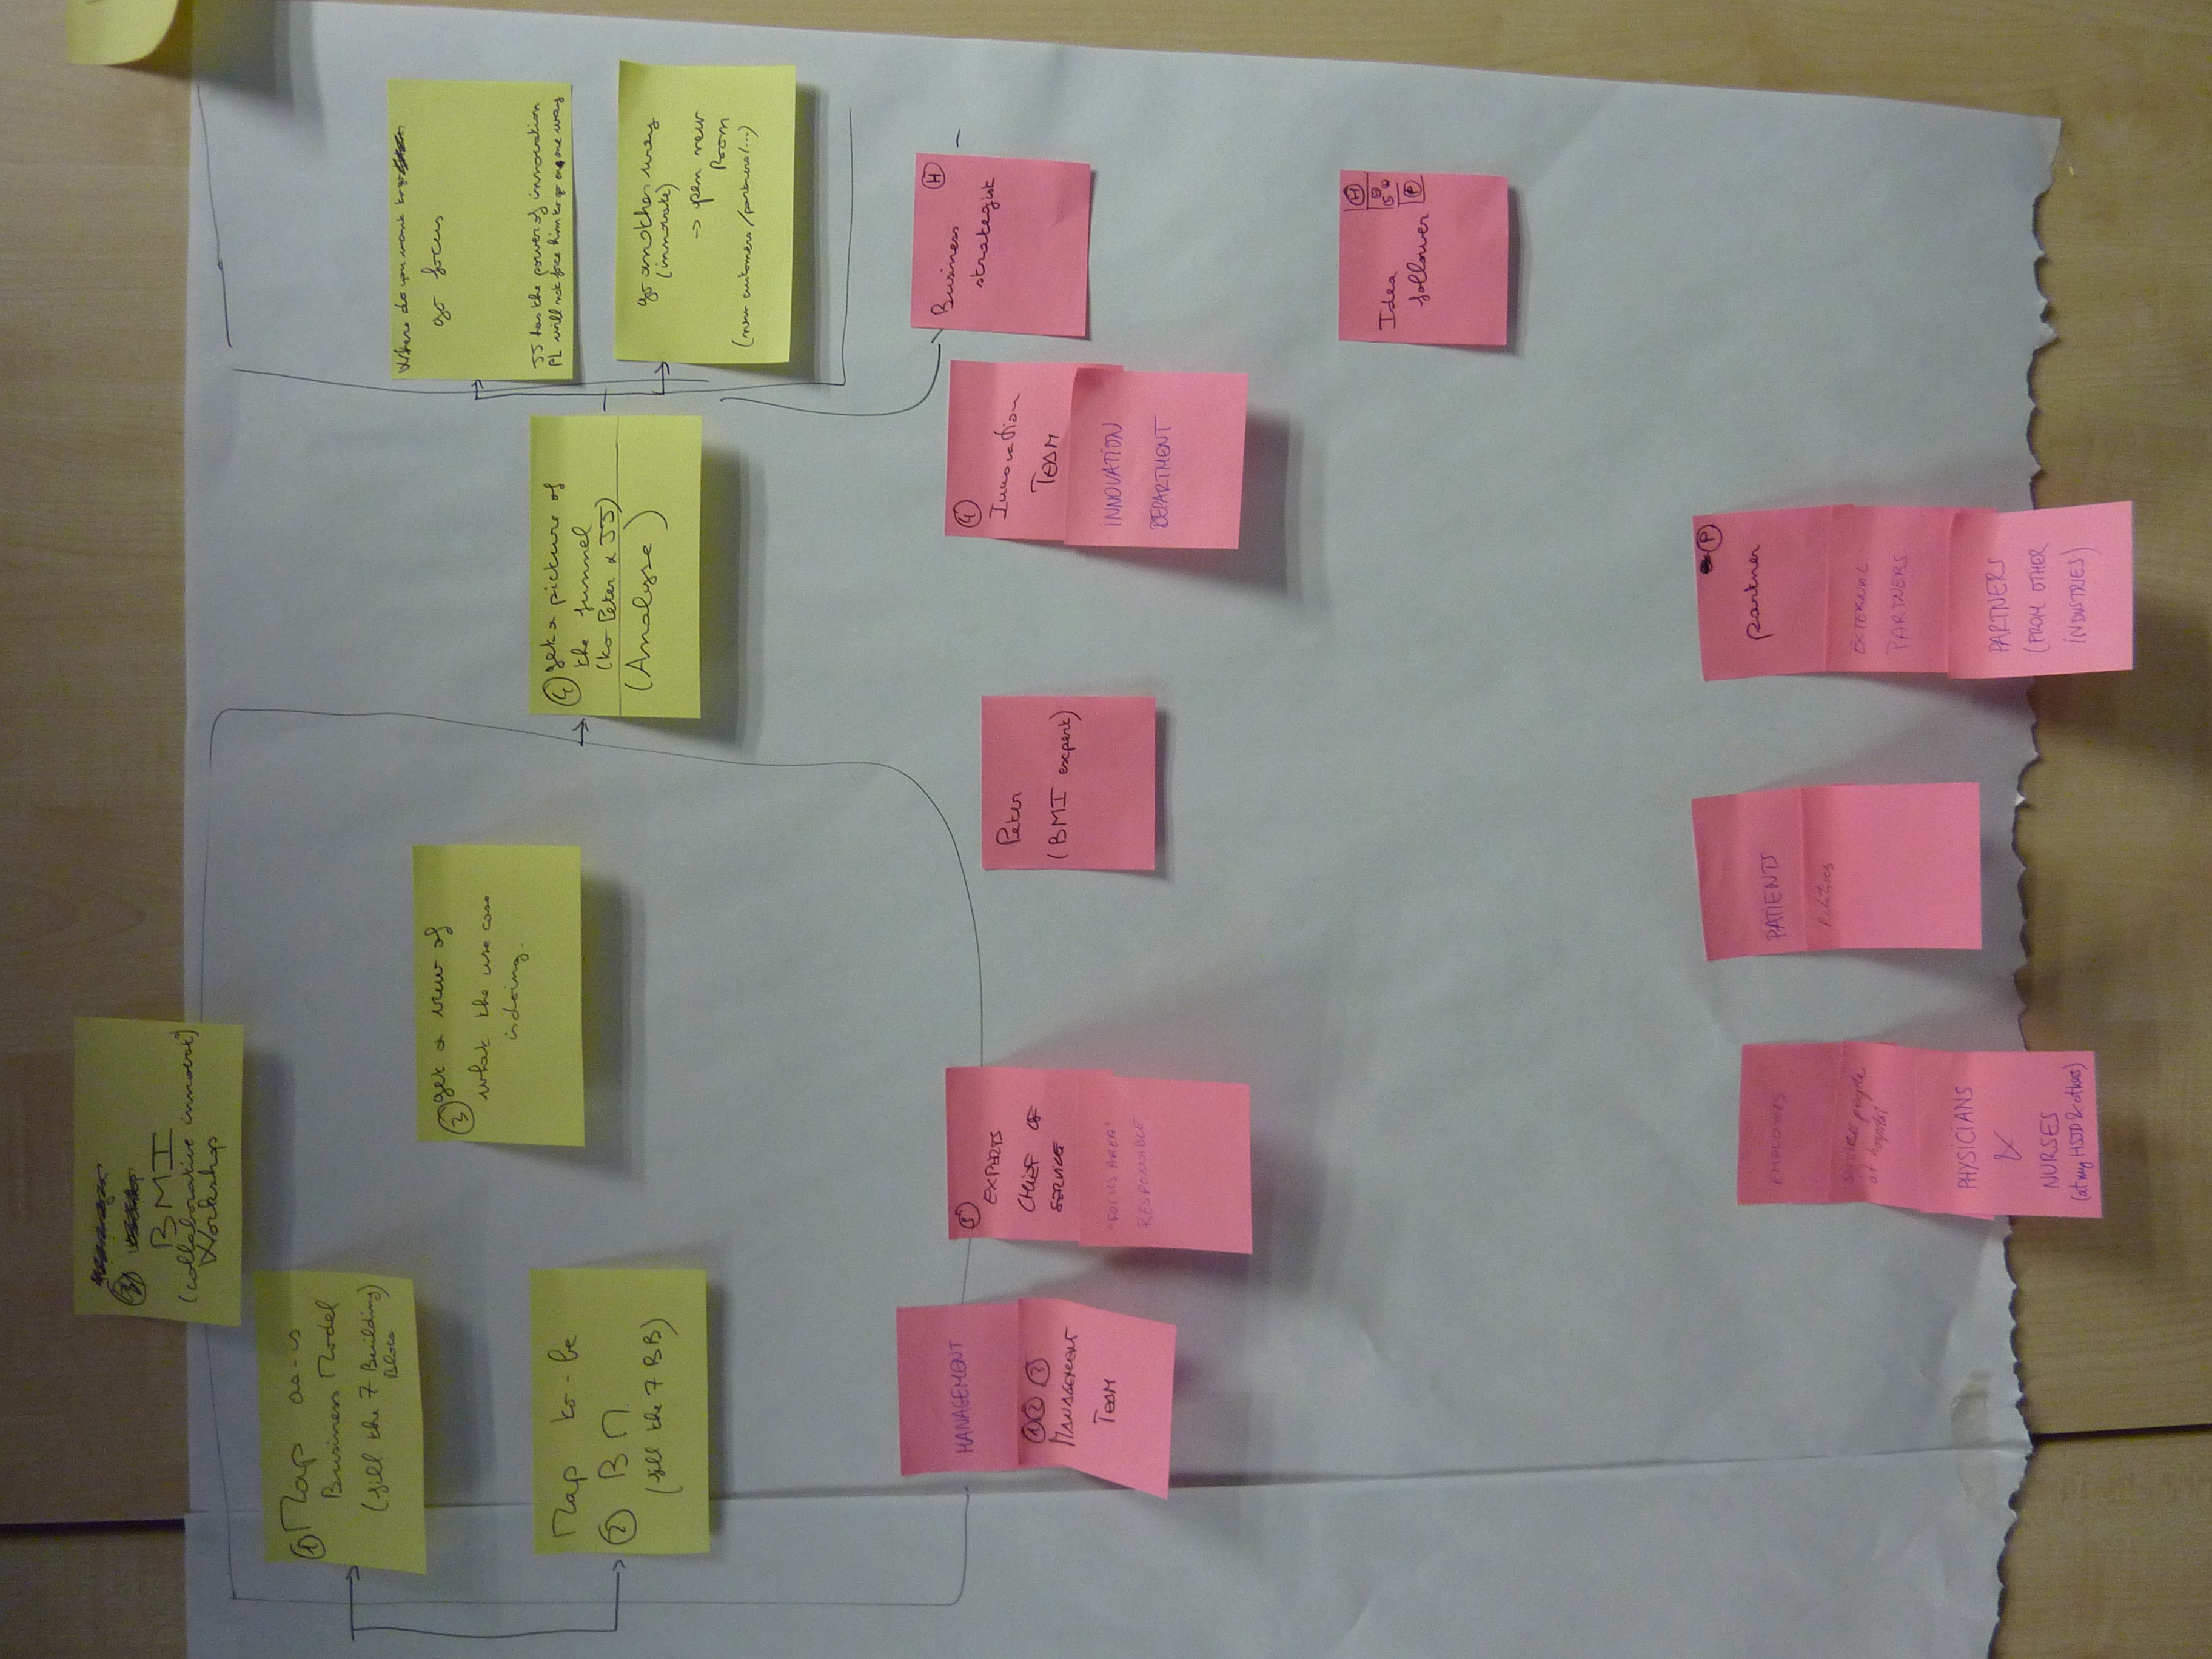 BMI
(collaborative innovat°)
Workshop
① Map as-is
Business Model
(fill the 7 Building
Blocs
Map to-be
② BM
(fill the 7 BB)
③ get a view of
what the use case
is doing.
④ get a picture of
the funnel
(to Peter & JJ)
(Analyse)
Where do you want to
go focus
JJ has the power of innovation
PL will not force him to go one way
go another way
(innovate)
→ open new
Room
(new customers/partners/...)
MANAGEMENT
① ② ③
MANAGEMENT
TEAM
EXPERTS
CHIEF OF
SERVICE
"FOCUS AREA"
RESPONSIBLE
Peter
(BMI expert)
④
Innovation
TEAM
INNOVATION
DEPARTMENT
Ⓗ
Business
strategist
Ⓗ
Idea
follower Ⓟ
EMPLOYEES
services people
at hospital
PHYSICIANS
&
NURSES
(at my HSJD & others)
PATIENTS
Relatives
Ⓟ
partner
EXTERNAL
PARTNERS
PARTNERS
(FROM OTHER
INDUSTRIES)